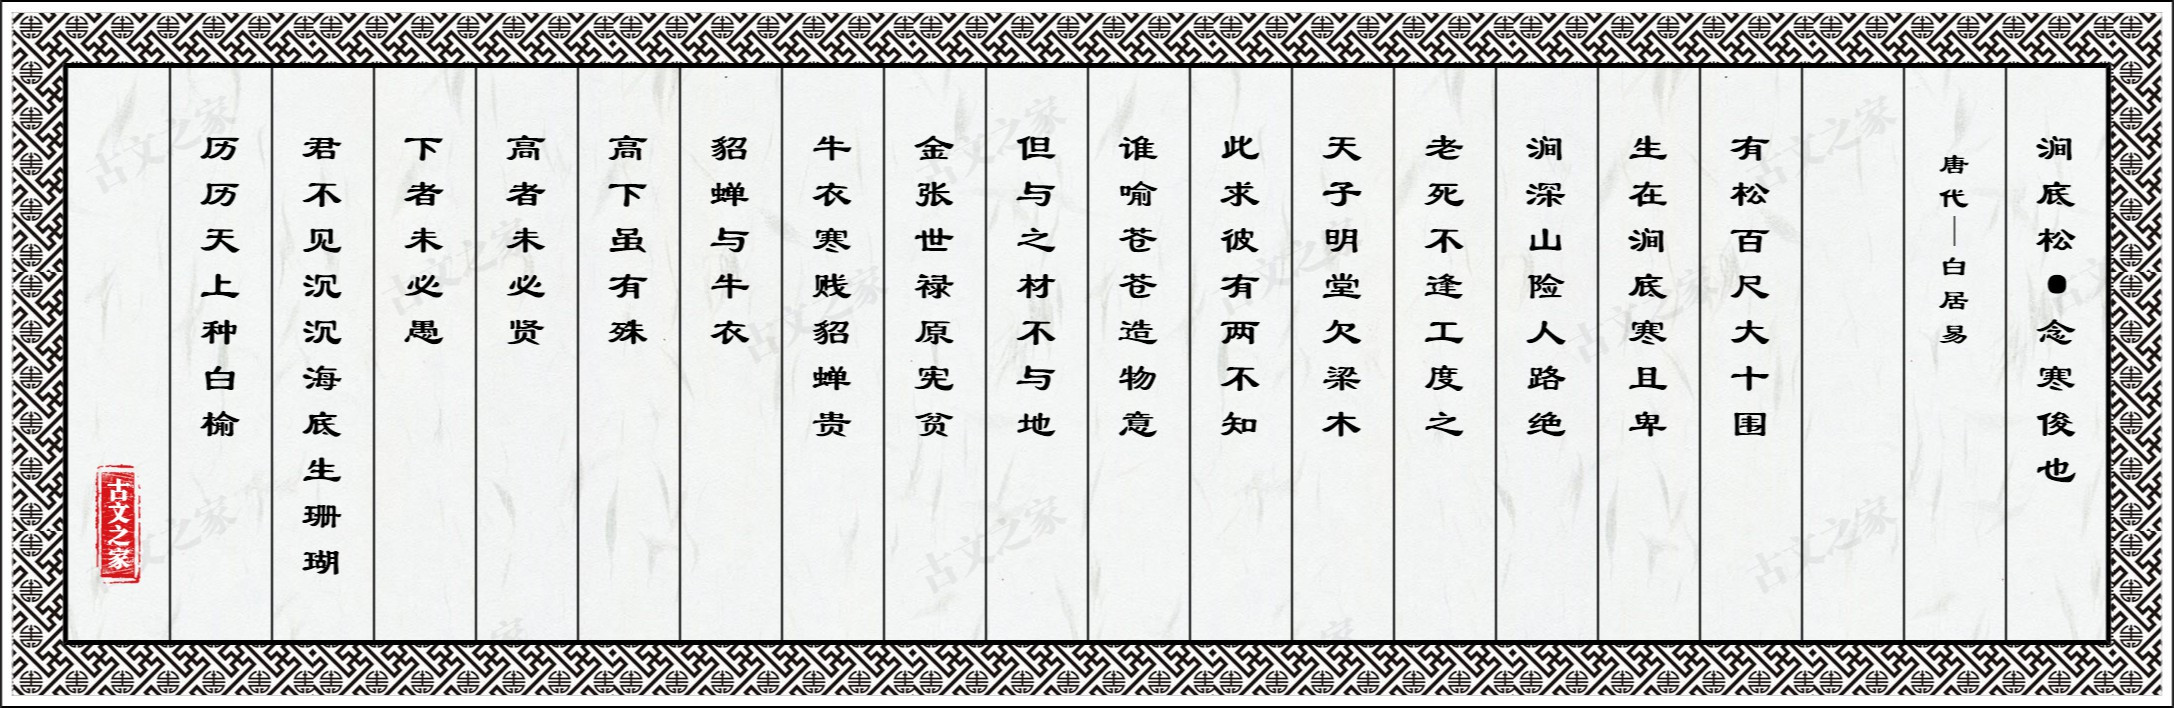 涧底松●念寒俊也
唐代—白居易
有松百尺大十围
生在涧底寒且卑
涧深山险人路绝
老死不逢工度之
天子明堂欠梁木
此求彼有两不知
谁喻苍苍造物意
但与之材不与地
金张世禄原宪贫
牛衣寒贱貂蝉贵
貂蝉与牛衣
高下虽有殊
高者未必贤
下者未必愚
君不见沉沉海底生珊瑚
历历天上种白榆
古文之家